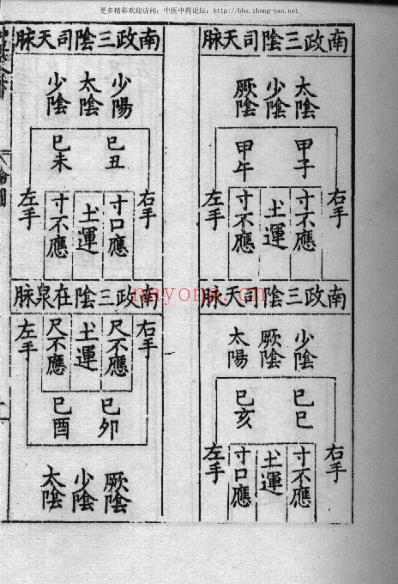 更多精彩欢迎访问：中医中药论坛：http://bbs.zhong-yao.net
南政三陰司天脉
太陰
少陰
厥陰
甲子
甲午
右手
寸不應
土運
寸不應
左手
南政三陰司天脉
少陰
厥陰
太陽
己巳
己亥
右手
寸不應
土運
寸口應
左手
南政三陰司天脉
少陽
太陰
少陰
己丑
己未
右手
寸口應
土運
寸不應
左手
南政三陰在泉脉
右手
尺不應
土運
尺不應
左手
己卯
己酉
厥陰
少陰
太陰
nayona.cn